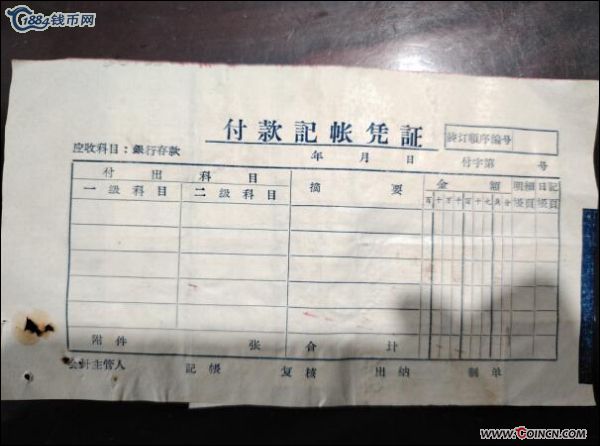 1884钱币网
付款記帐凭証
装订順序編号
应收科目：銀行存款
年 月 日
付字第 号
付出科目
摘要
金額
明細 日記
一級科目 二級科目
百十万千百十元角分
帳頁 帳頁
附件 张 合計
会計主管人 記帳 复核 出納 制单
www.COINCN.COM